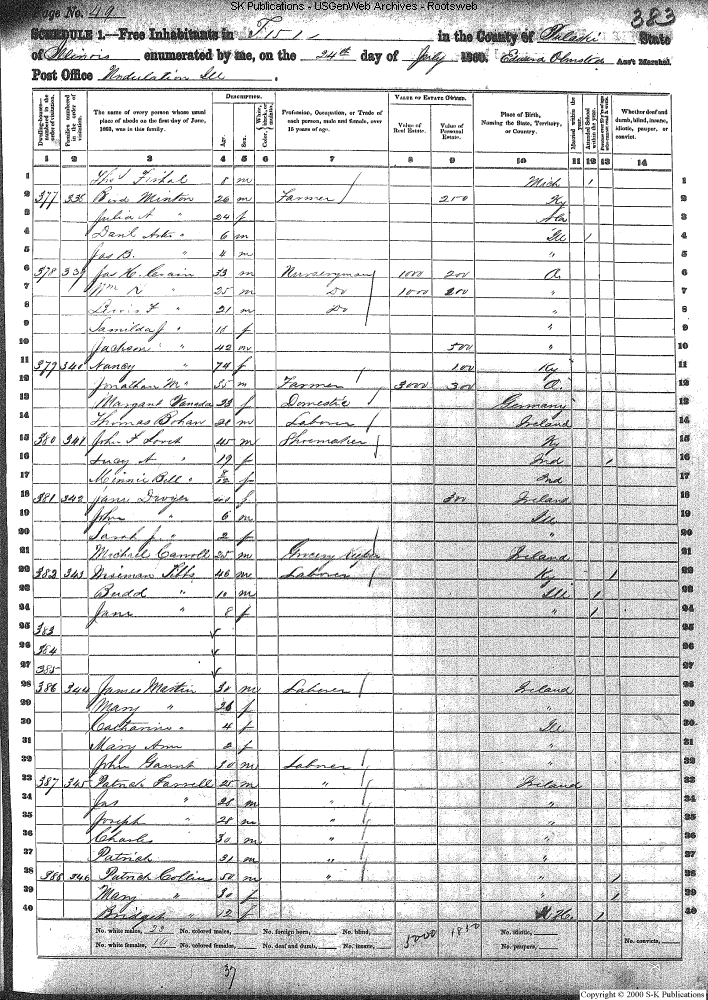 SK Publications - USGenWeb Archives - Rootsweb
Page No. 49
383
SCHEDULE 1.—Free Inhabitants in T 15 1 in the County of Pulaski State
of Illinois enumerated by me, on the 24th day of July 1860. Edward Olmsted Ass't Marshal.
Post Office Undulation Ill.
Dwelling-houses—numbered in the order of visitation.
Families numbered in the order of visitation.
The name of every person whose usual place of abode on the first day of June, 1860, was in this family.
DESCRIPTION.
Age.
Sex.
Color, White, black, or mulatto.
Profession, Occupation, or Trade of each person, male and female, over 15 years of age.
VALUE OF ESTATE OWNED.
Value of Real Estate.
Value of Personal Estate.
Place of Birth, Naming the State, Territory, or Country.
Married within the year.
Attended School within the year.
Whether deaf and dumb, blind, insane, idiotic, pauper, or convict.
1 2 3 4 5 6 7 8 9 10 11 12 13 14
1 8 m Mich / 1
2 377 338 Minton 26 m Farmer 250 Ky 2
3 Julia A " 24 f 3
4 " 6 m Ill / 4
5 Jas B. " 4 m " 5
6 378 339 Jas H. Crain 33 m Nurseryman 1000 200 O. 6
7 Wm R " 25 m Do 1000 200 " 7
8 Lewis F " 21 m Do " 8
9 " f " 9
10 Jackson " 42 m 500 " 10
11 379 340 Nancy " 74 f 100 Ky 11
12 Jonathan M " 35 m Farmer 3000 300 O. 12
13 Margaret 23 f Domestic Germany 13
14 Thomas Bohan 28 m Laborer Ireland 14
15 380 341 John F 45 m Shoemaker Ky 15
16 Lucy A " 19 f Ind / 16
17 Minnie Bell " f Ind 17
18 381 342 Jane f 300 Ireland 18
19 John " 6 m Ill 19
20 Sarah J. " 2 f " 20
21 Michael Carroll 25 m Grocery Keeper Ireland 21
22 382 343 Wiseman 46 m Laborer Ky / 22
23 Budd " 10 m Ill / 23
24 Jane " 8 f " / 24
25 383 25
26 384 26
27 385 27
28 386 344 James Martin 30 m Laborer Ireland 28
29 Mary " 26 f " 29
30 Catharine " 4 f Ill 30
31 Mary Ann 2 f " 31
32 John 30 m Laborer " 32
33 387 345 Patrick Farrell 25 m " Ireland 33
34 Jas " 28 m " " 34
35 Joseph " 28 m " " 35
36 Charles 30 m " " 36
37 Patrick 31 m " " 37
38 388 346 Patrick Collins 50 m " " / 38
39 Mary " 30 f " / 39
40 Bridget " 12 f N.H. / 40
No. white males, No. colored males, No. foreign born, No. blind, 5000 1850 No. idiotic,
No. white females, No. colored females, No. deaf and dumb, No. insane, No. paupers, No. convicts,
37
Copyright © 2000 S-K Publications